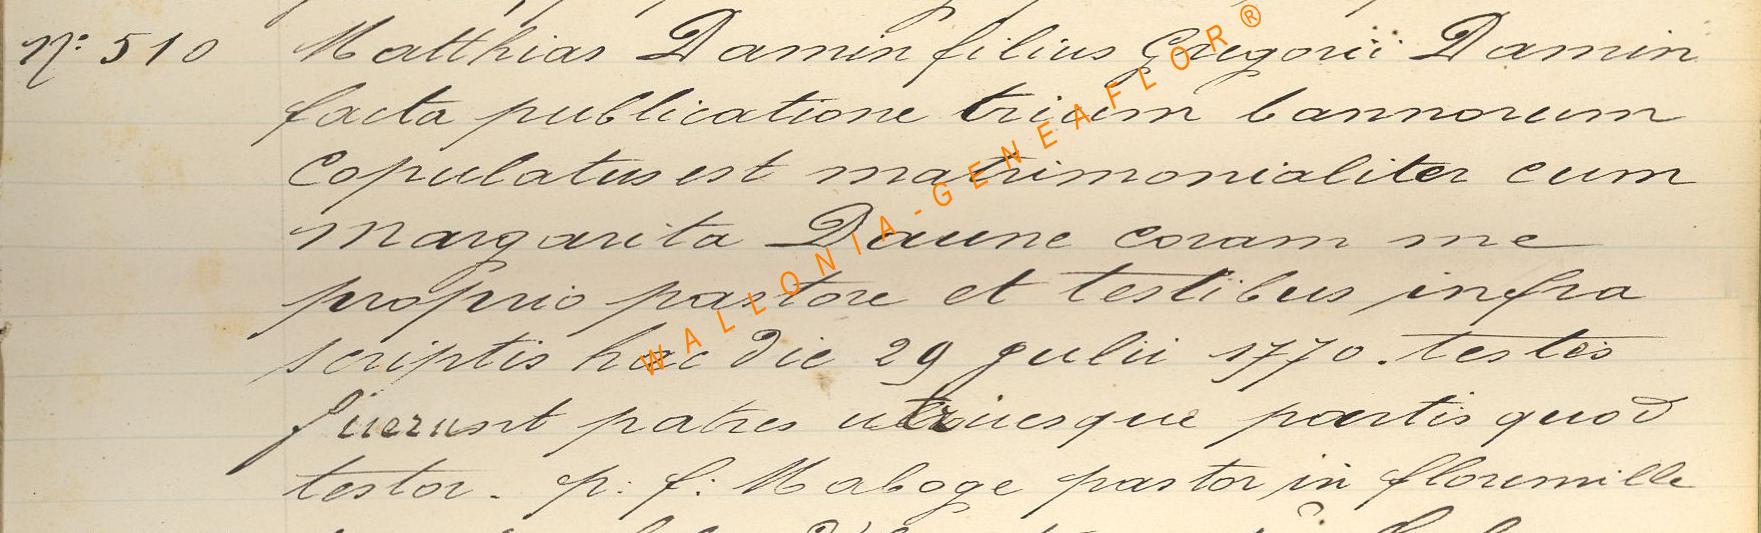 N: 510 Matthias Damin filius Gregorii Damin
facta publicatione trium bannorum
Copulatus est matrimonialiter cum
Margarita Daune coram me
proprio pastore et testibus infra
scriptis hac die 29 julii 1770. testes
fuerunt patres utriusque partis quod
testor. p: f: Maboge pastor in flouenville
WALLONIA-GENEAFLOR®